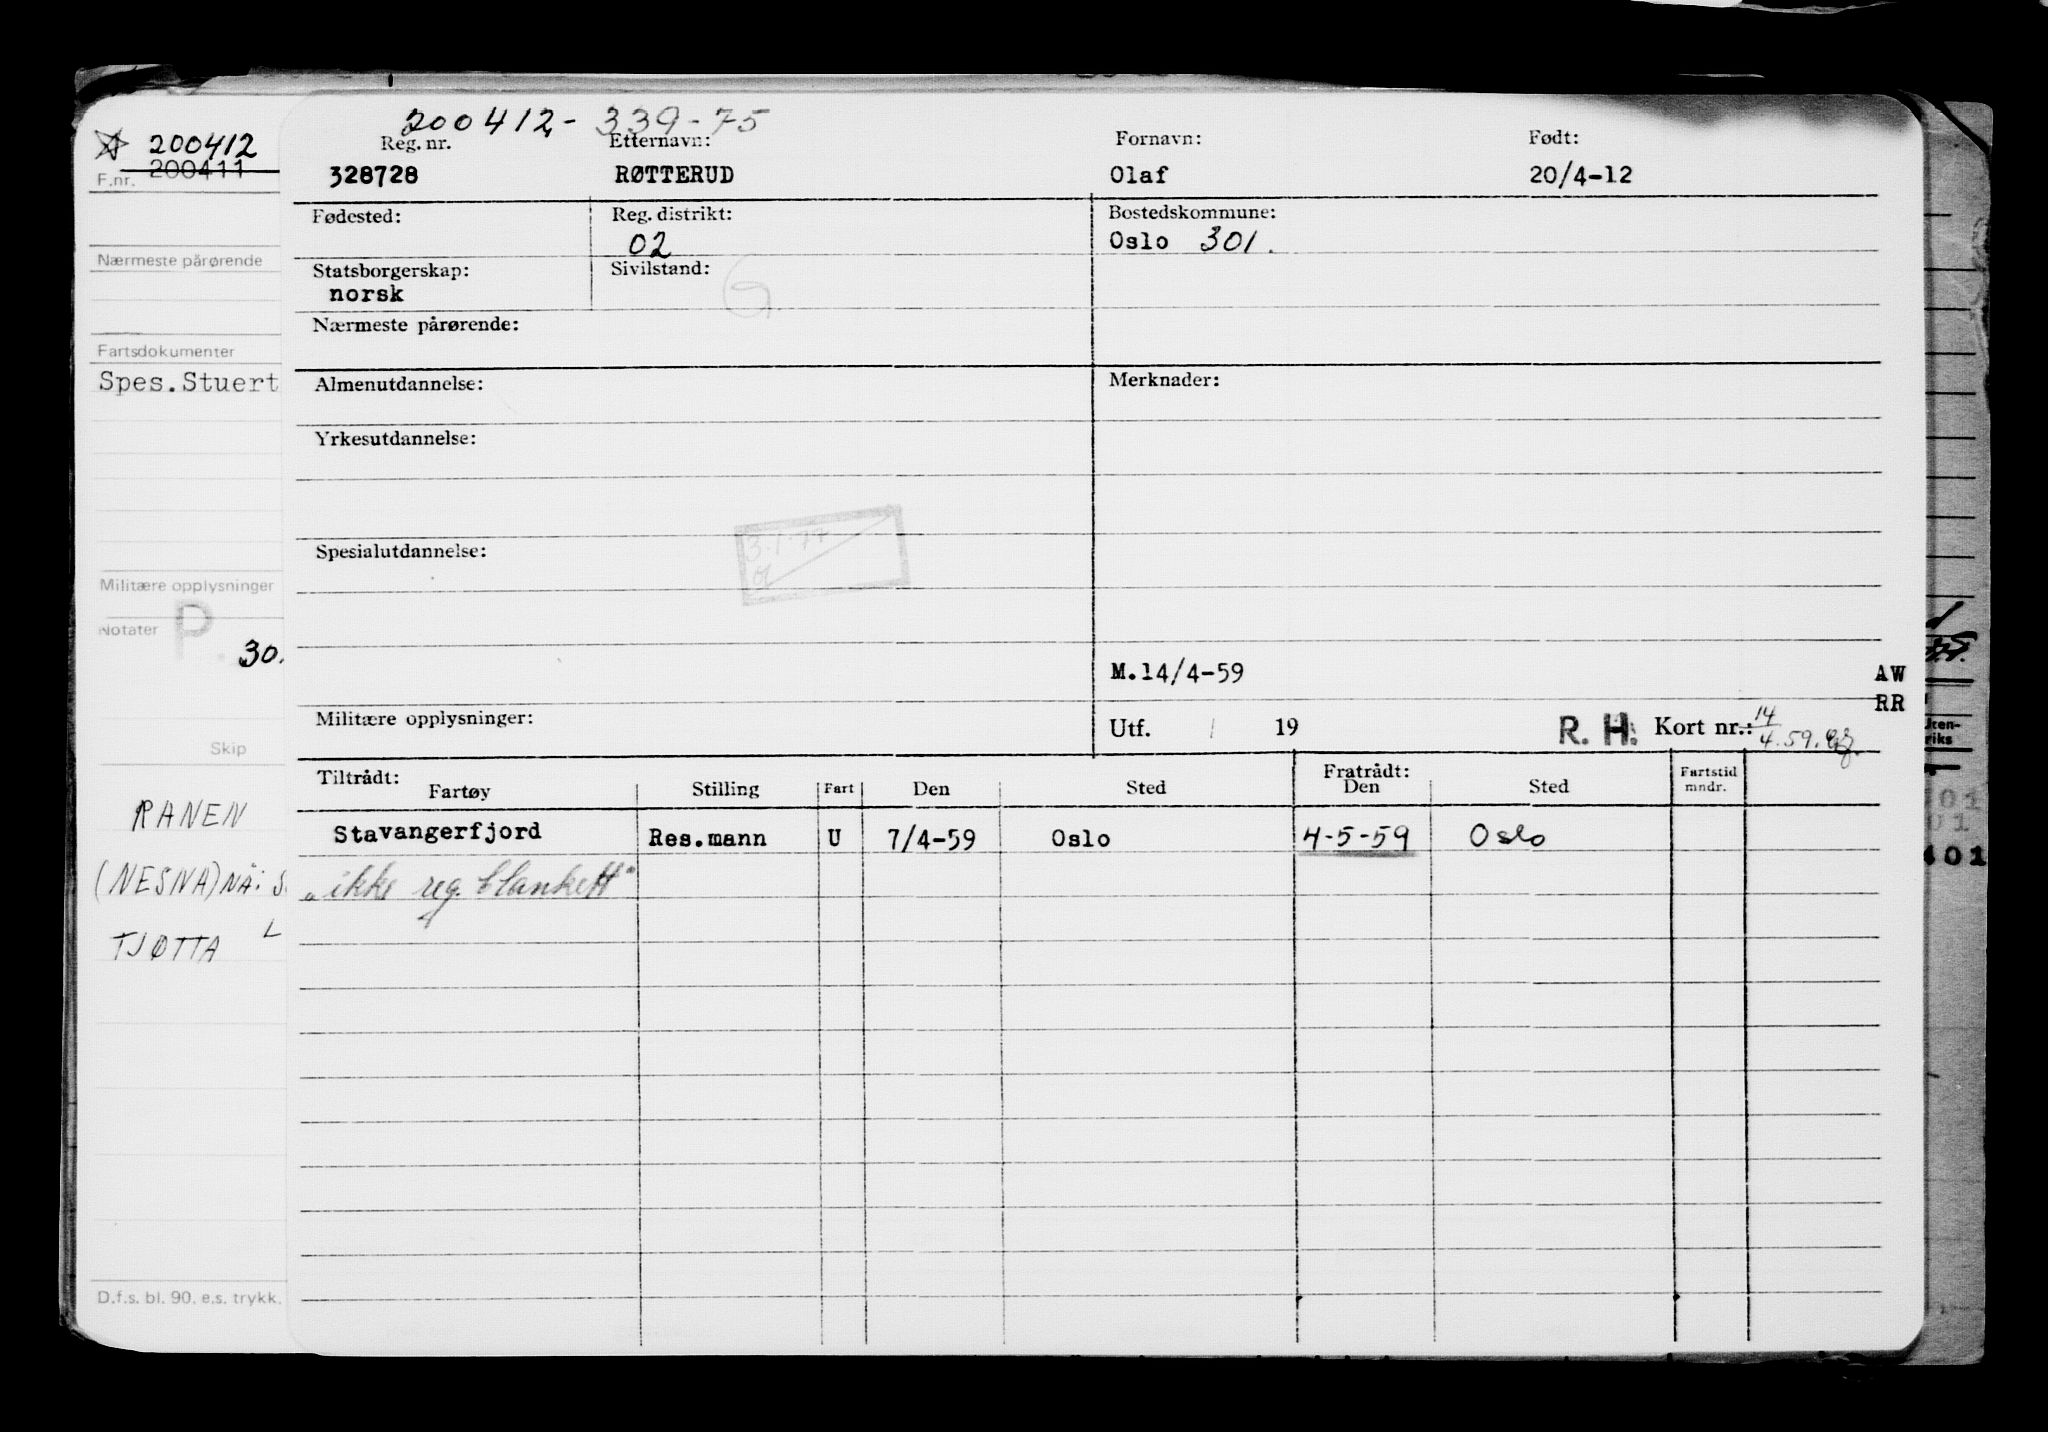 200412
200411
F.nr.
Nærmeste pårørende
Fartsdokumenter
Spes.Stuert
Militære opplysninger
P.
Notater
30.
Skip
RANEN
(NESNA) NÅ: S
TJØTTA L
D.f.s. bl. 90. e.s. trykk.
200412-339-75
Reg. nr. Etternavn: Fornavn: Født:
328728 RØTTERUD Olaf 20/4-12
Fødested: Reg. distrikt: Bostedskommune:
02 Oslo 301.
Statsborgerskap: Sivilstand:
norsk G
Nærmeste pårørende:
Almenutdannelse: Merknader:
Yrkesutdannelse:
3.1.77
Spesialutdannelse:
M.14/4-59 AW
RR
Militære opplysninger: Utf. / 19 R. H. Kort nr.: 14/4.59.
Tiltrådt: Fratrådt:
Fartøy Stilling Fart Den Sted Den Sted Fartstid mndr.
Stavangerfjord Res.mann U 7/4-59 Oslo 4-5-59 Oslo
"ikke reg. blankett"
riks
01
01
401